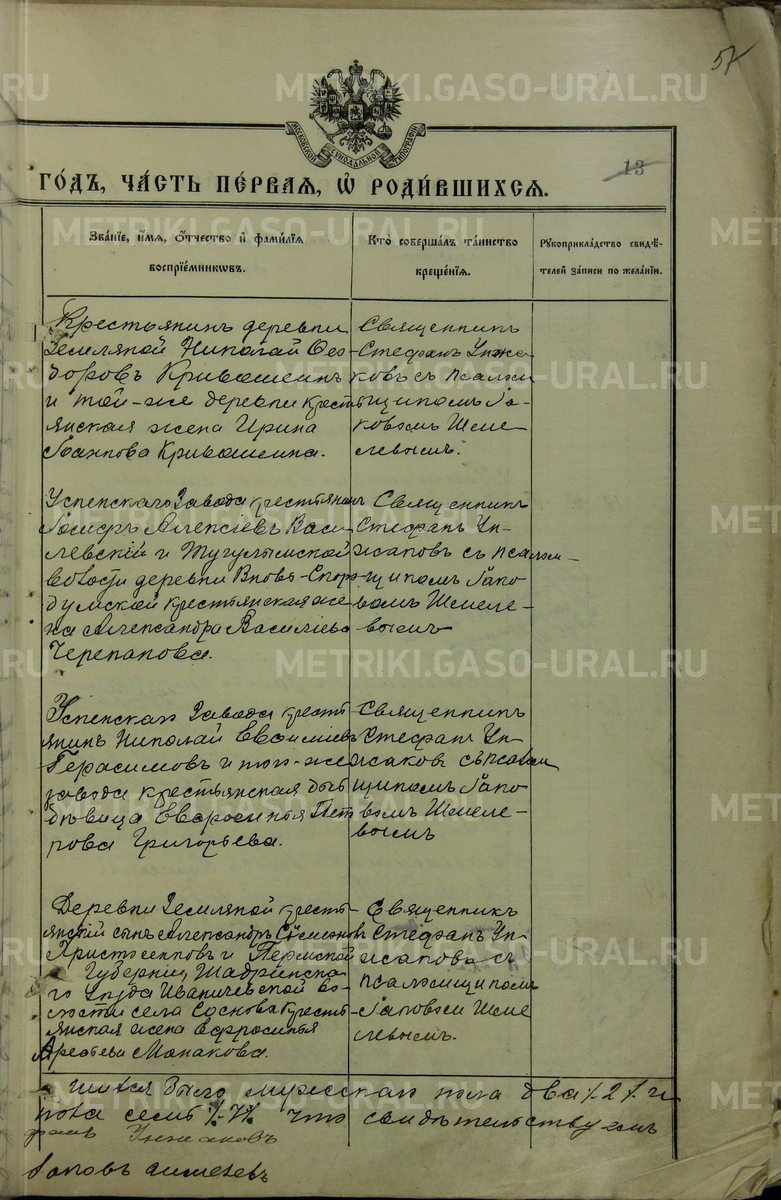 57
13
МОСКОВСКОЙ СѴНОДАЛЬНОЙ ТИПОГРАФІИ
ГО́ДЪ, ЧА́СТЬ ПЕ́РВАЯ, Ѡ҆ РОДИ́ВШИХСѦ.
Зва́нїе, и҆́мя, ѻ҆́тчество и҆ фами́лїя
воспрїе́мниковъ.
Кто̀ соверша́лъ та́инство
креще́нїя.
Рꙋкоприкла́дство свидѣ́-
телей за́писи по жела́нїю.
Крестьянинъ деревни
Земляной Николай Ѳео-
доровъ Кривошеинъ
и той-же деревни кресть
янская жена Ирина
Іоаннова Кривошеина.
Священникъ
Стефанъ Унжа
ковъ съ псалом
щикомъ Іа-
ковомъ Шеме-
левымъ.
Успенскаго Завода крестьянинъ
Іосифъ Алексіевъ Васи
левскій и Тугулымской
волости деревни
думской крестьянская же
на Александра Васильева
Черепанова.
Священникъ
Стефанъ Ун-
жаковъ съ псалом-
щикомъ Іако
вомъ Шемеле-
вымъ
Успенскаго Завода кресть
янинъ Николай Евѳиміевъ
Герасимовъ и того-же
завода крестьянская
дѣвица Евфросинія Пет
рова Григорьева.
Священникъ
Стефанъ Ун-
жаковъ съ псалом
щикомъ Іако
вомъ Шемеле-
вымъ
Деревни Земляной кресть-
янскій сынъ Александръ Симеоновъ
и Пермской
Губерніи Шадринска
го Уѣзда Иванищевской во-
лости села Соснова кресть
янская жена Евфросинія
Манакова.
Священникъ
Стефанъ Ун-
жаковъ съ
псаломщикомъ
Іаковомъ Шеме
левымъ.
было мужескаго пола два /:2:/ и
пола семь /:7:/ что свидѣтельствуемъ
Унжаковъ
Іаковъ Шмелевъ
METRIKI.GASO-URAL.RU